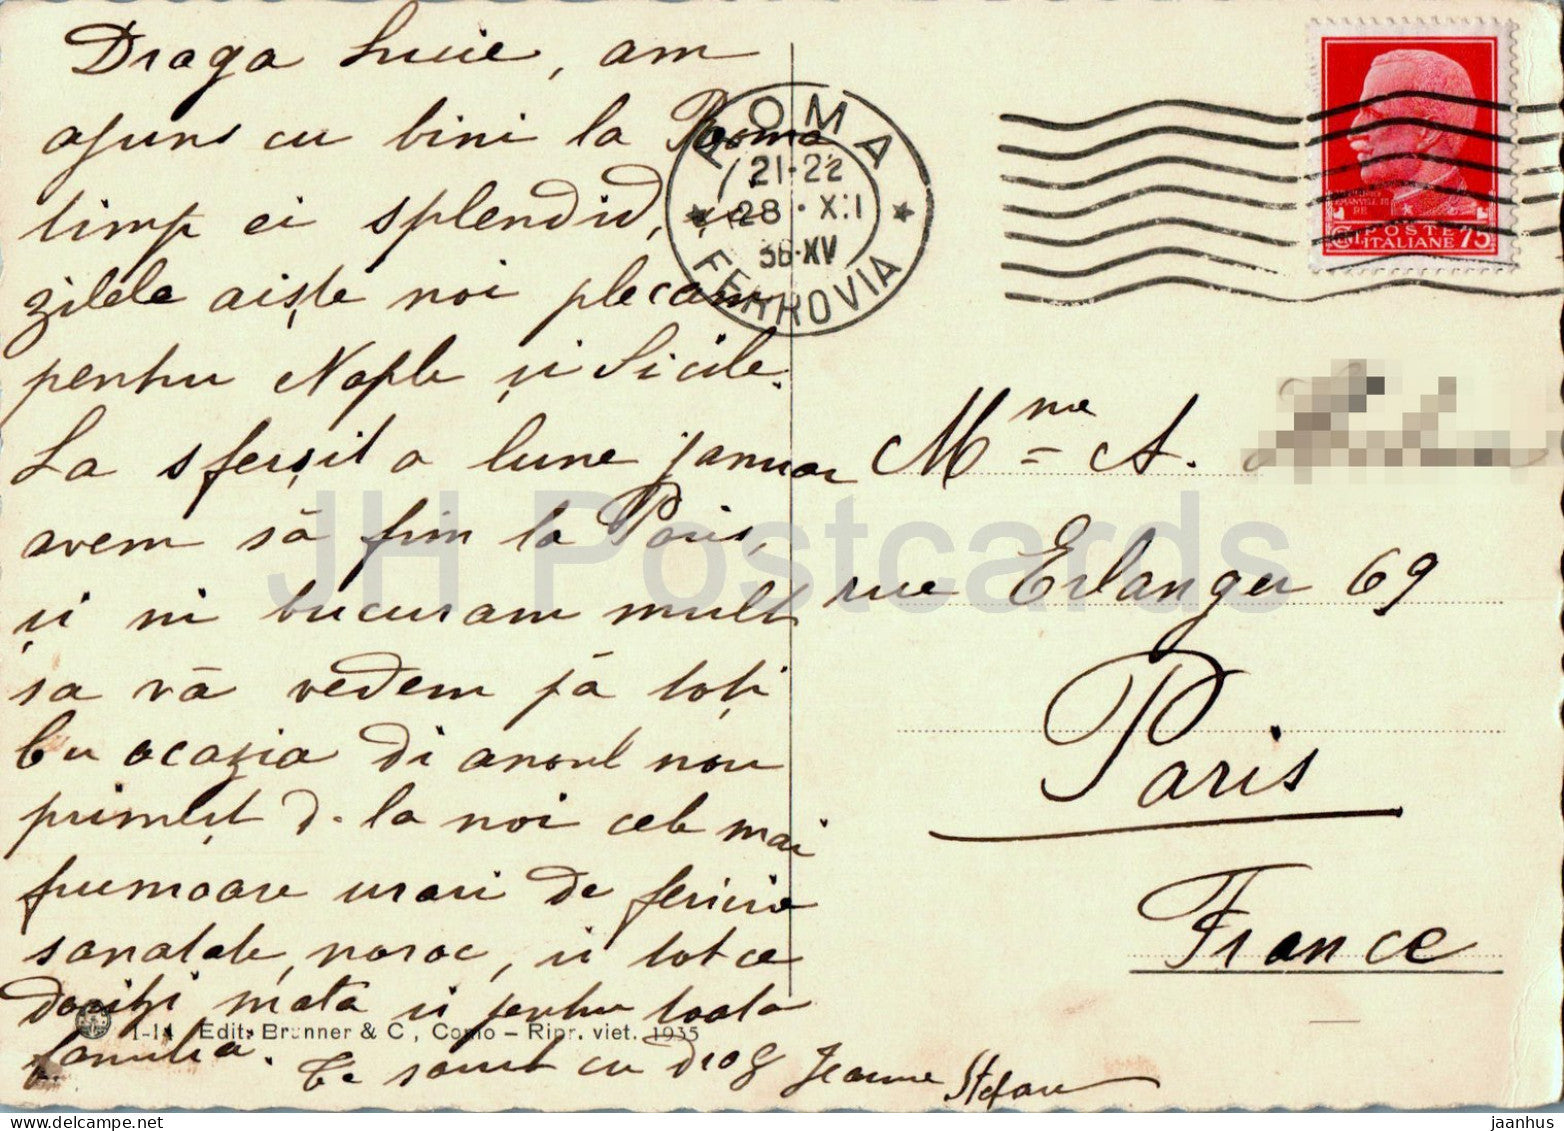 Draga Lucie, am
ajuns cu bini la Roma
timp ei splendid, in
zilele aiște noi plecam
pentru Naple și Sicile.
La sferșit a lune januar
avem să fim la Paris,
și ni bucuram mult
sa vă vedem pă toți
Cu ocazia di anoul nou
primest d. la noi cele mai
frumoase urari de fericire
sanatate, noroc, si tot ce
doriți mata si pentru toata
familia. Te sarut cu drag Jeanne Stefan
ROMA
21-22
28 · XII
36·XV
FERROVIA
POSTE
ITALIANE
CENT. 75
Mme A.
rue Erlanger 69
Paris
France
JH Postcards
1-14 Edit. Brunner & C., Como – Ripr. viet. 1935
delcampe.net
jaanhus